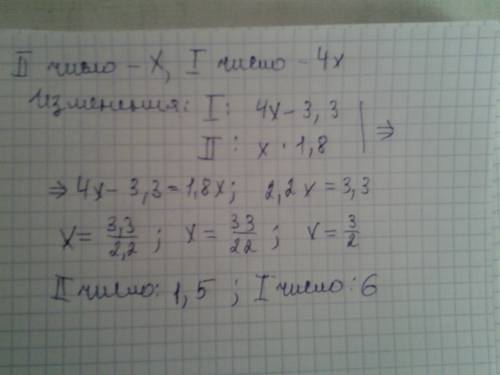 II число – X, I число – 4x
Изменения: I: 4x – 3,3 | ⇒
II: x · 1,8
⇒ 4x – 3,3 = 1,8x; 2,2x = 3,3
x = 3,3/2,2 ; x = 33/22 ; x = 3/2
II число: 1,5 ; I число: 6